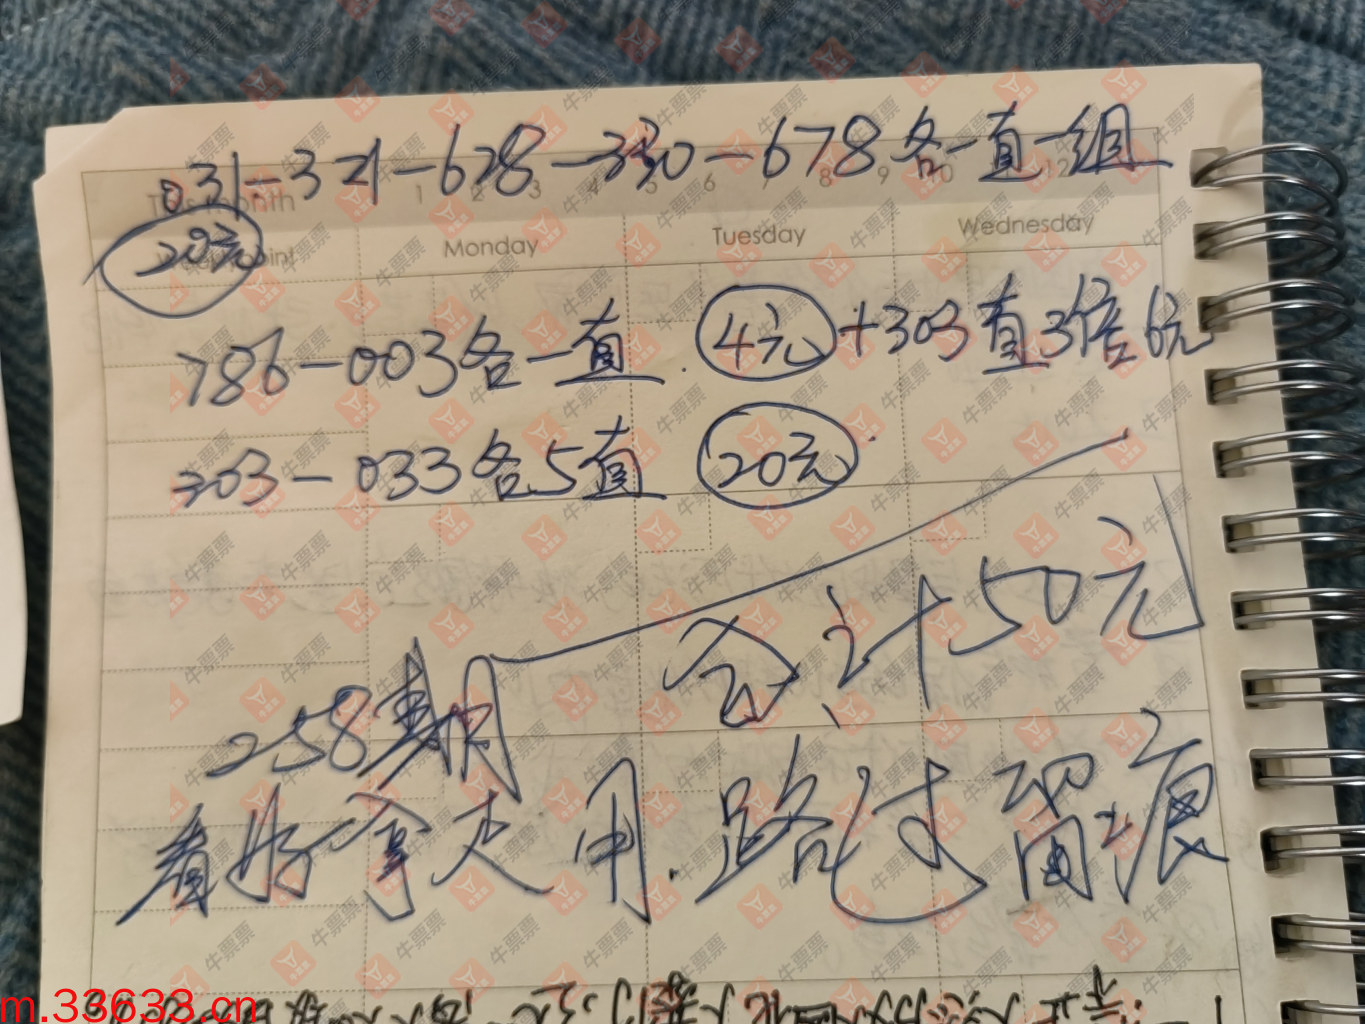 031-321-628-330-678各一直一组
This month 1 2 3 4 5 6 7 8 9 10 12
20元
Monday Tuesday Wednesday
786-003各一直. 4元+303直3倍6元
303-033各5直 20元
合计50元
258期
看好拿走用.路过留痕
牛票票
m.33633.cn